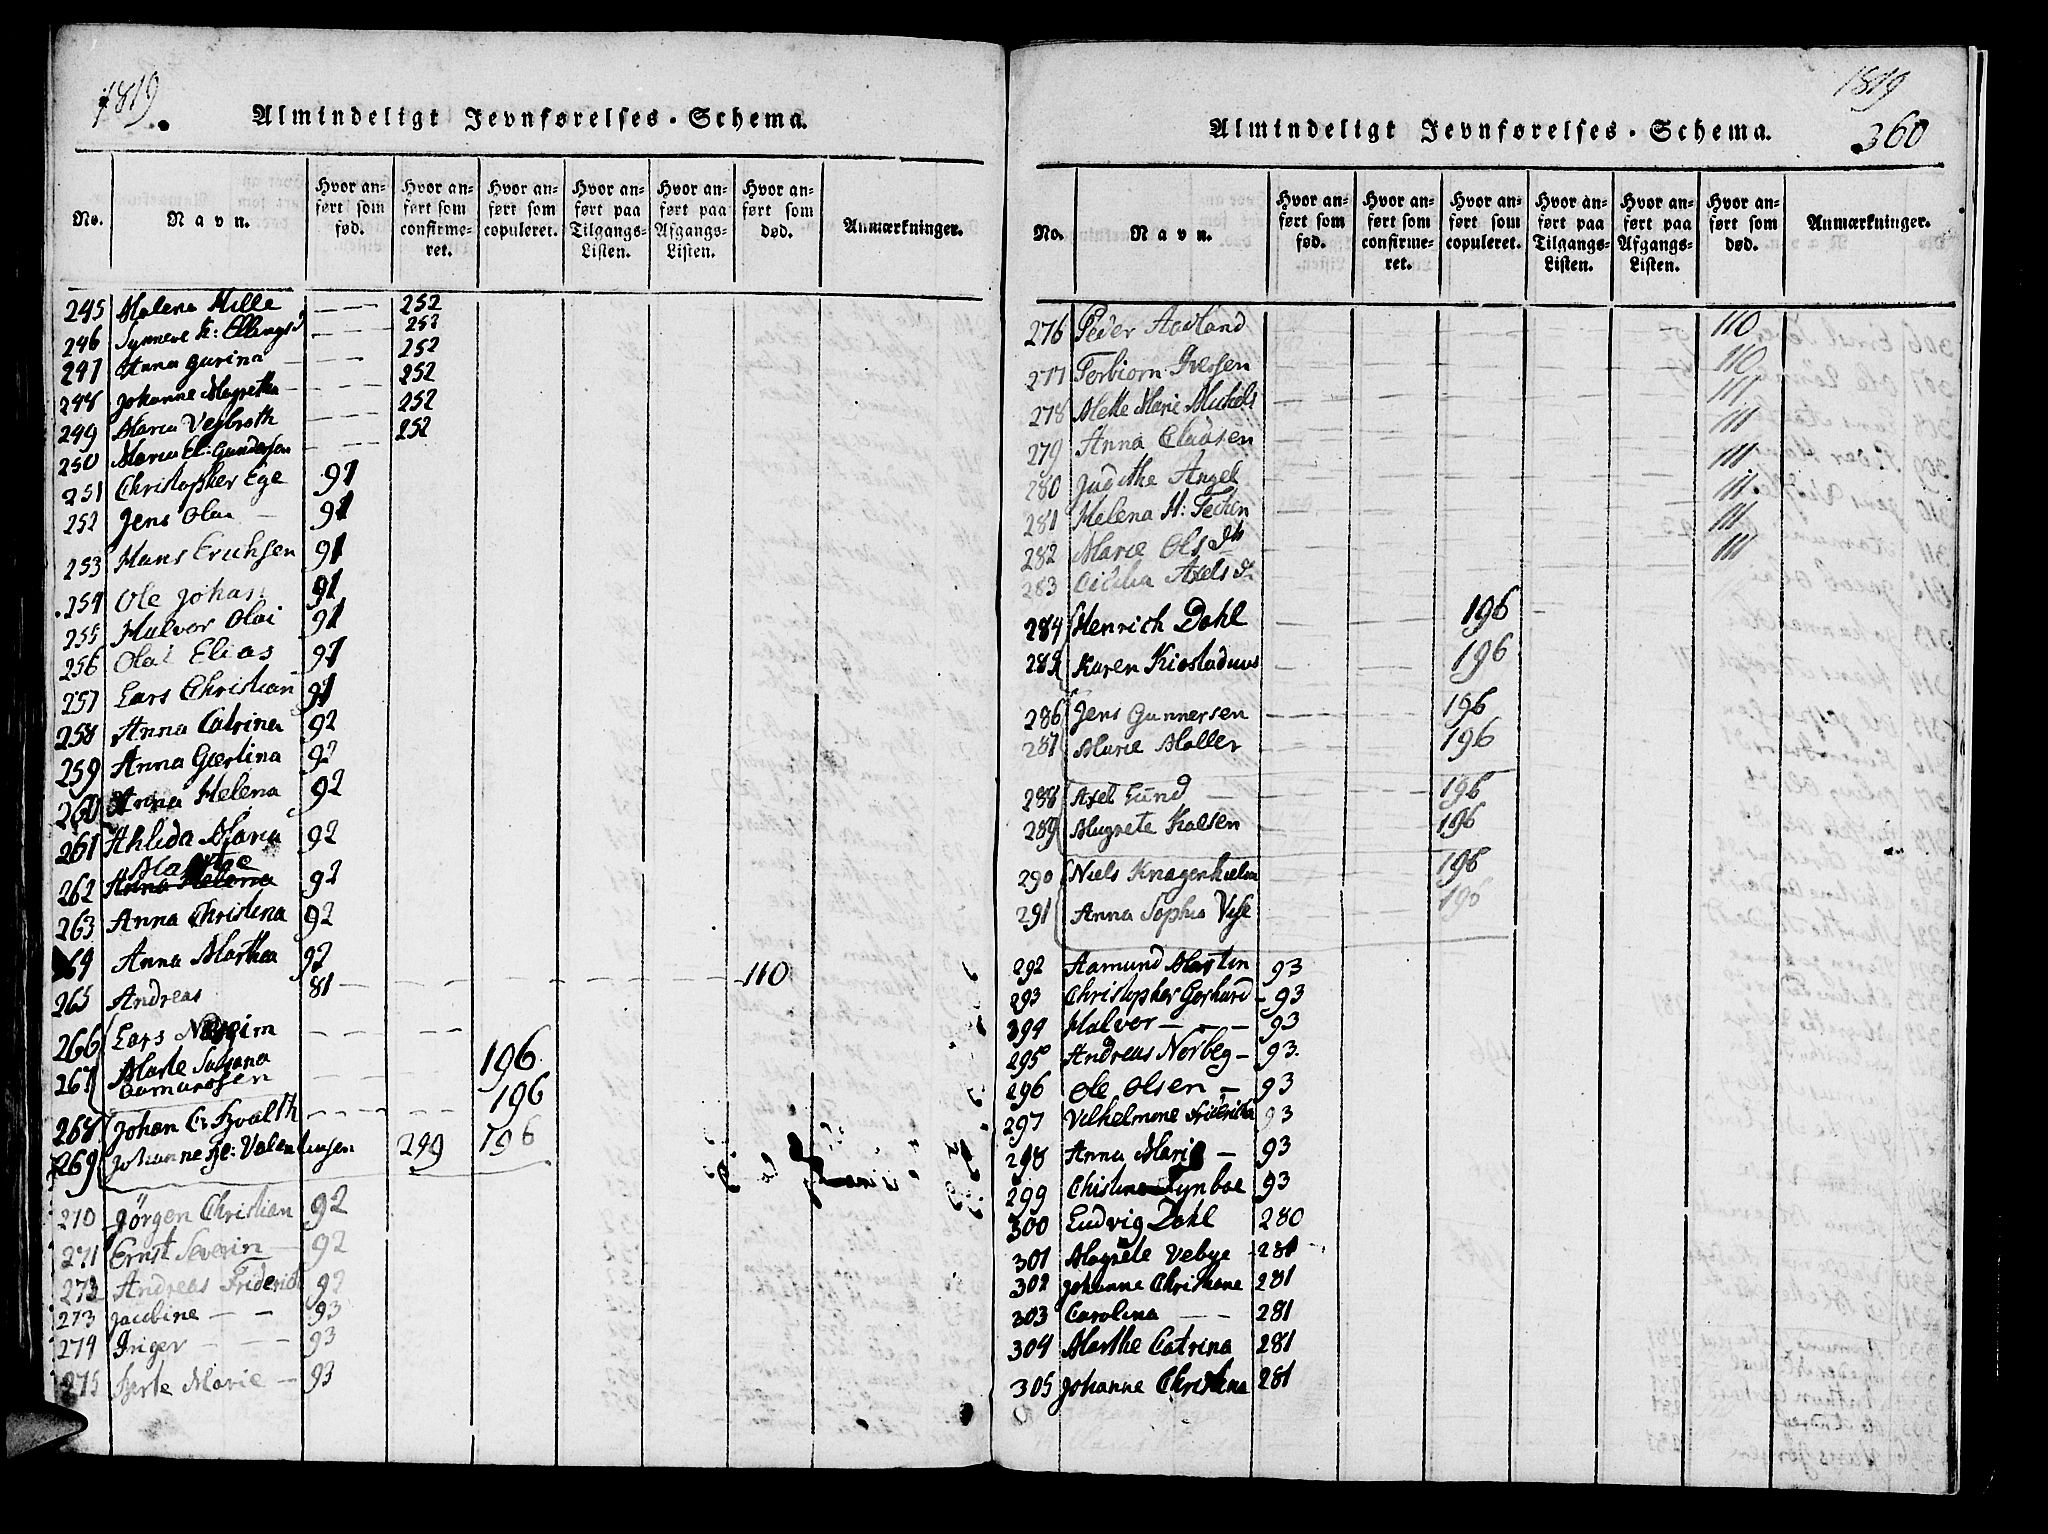 1819
Almindeligt Jevnførelses-Schema.
No. Navn. Hvor anført som fød. Hvor anført som confirmeret. Hvor anført som copuleret. Hvor anført paa Tilgangs-Listen. Hvor anført paa Afgangs-Listen. Hvor anført som død. Anmærkninger.
245 Malena Hille 252
246 Synneve K: Ellings 252
247 Anna Gurina 252
248 Johanne Magretha 252
249 Maria 252
250 Maria El: Gundersen 252
251 Christopher Ege 91
252 Jens Olai 91
253 Hans Erichsen 91
254 Ole Johan 91
255 Halvor Olai 91
256 Olai Elias 91
257 Lars Christian 91
258 Anna Catrina 92
259 Anna Gjertina 92
260 Anna Helena 92
261 Maria 92
Marthe
262 Anna Helena 92
263 Anna Christina 92
264 Anna Martha 92
265 Andreas 81 110
266 Lars
267 Marte Susana 196
Aamundsen 196
268 Johan C:
269 Johanne Fr: Valentinsen 249 196
270 Jörgen Christian 92
271 Ernst Severin 92
272 Andreas Friderich 92
273 Jacobine 93
274 Inger 93
275 Marie 93
1819
360
Almindeligt Jevnførelses-Schema.
No. Navn. Hvor anført som fød. Hvor anført som confirmeret. Hvor anført som copuleret. Hvor anført paa Tilgangs-Listen. Hvor anført paa Afgangs-Listen. Hvor anført som død. Anmærkninger.
276 Peder Aadland 110
277 Torbiorn Iversen 110
278 Mette Marie Mickels 111
279 Anna Claasen 111
280 Judithe Angel 111
281 Helena H: 111
282 Marie Ols 111
283 Cicilia Axels 111
284 Henrich Dahl 196
285 Karen 196
286 Jens Gunnersen 196
287 Marie Møller 196
288 Axel Lund 196
289 Magrete 196
290 Niels Knagenhielm 196
291 Anna Sophia 196
292 Aamund Martin 93
293 Christopher Gerhard 93
294 Halvor 93
295 Andreas Norbeg 93
296 Ole Olsen 93
297 Vilhelmine Friderica 93
298 Anna Marie 93
299 93
300 Ludvig Dahl 280
301 Magrete Vebye 281
302 Johanne Christiane 281
303 Carolina 281
304 Marthe Catrina 281
305 Johanne Christina 281